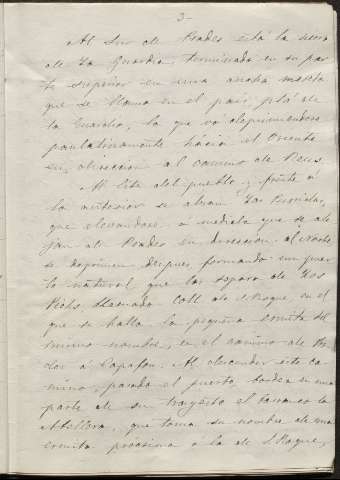 3-
Al Sur de Prades está la sierra
de La Guardia, terminada en su par
te superior en una ancha meseta
que se llama en el país plá de
la Guardia, la que vá deprimiendose
paulatinamente hácia el Oriente
en direccion al camino de Reus.
Al Este del pueblo y frente á
la anterior se alzan Las
que elevandose á medida que se ale
jan de Prades en direccion al Norte
se deprimen despues formando un puer
to natural que las separa de Los
Pichs llamado Coll de S. Roque, en el
que se halla la pequeña ermita del
mismo nombre, en el camino de Pra
des á Capafons. Al descender este ca
mino, pasado el puerto, bordea en una
parte de su trayecto el barranco de
Abellera, que toma su nombre de una
ermita próxima á la de S. Roque,